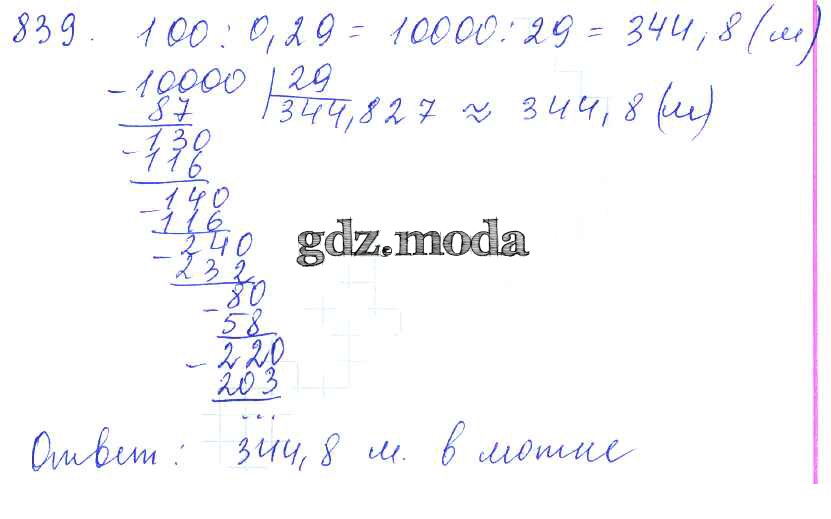 839. 100 : 0,29 = 10000 : 29 = 344,8 (м)
- 10000 | 29
87 344,827 ≈ 344,8 (м)
- 130
116
- 140
116
- 240
232
- 80
58
- 220
203
...
gdz.moda
Ответ: 344,8 м. в мотке